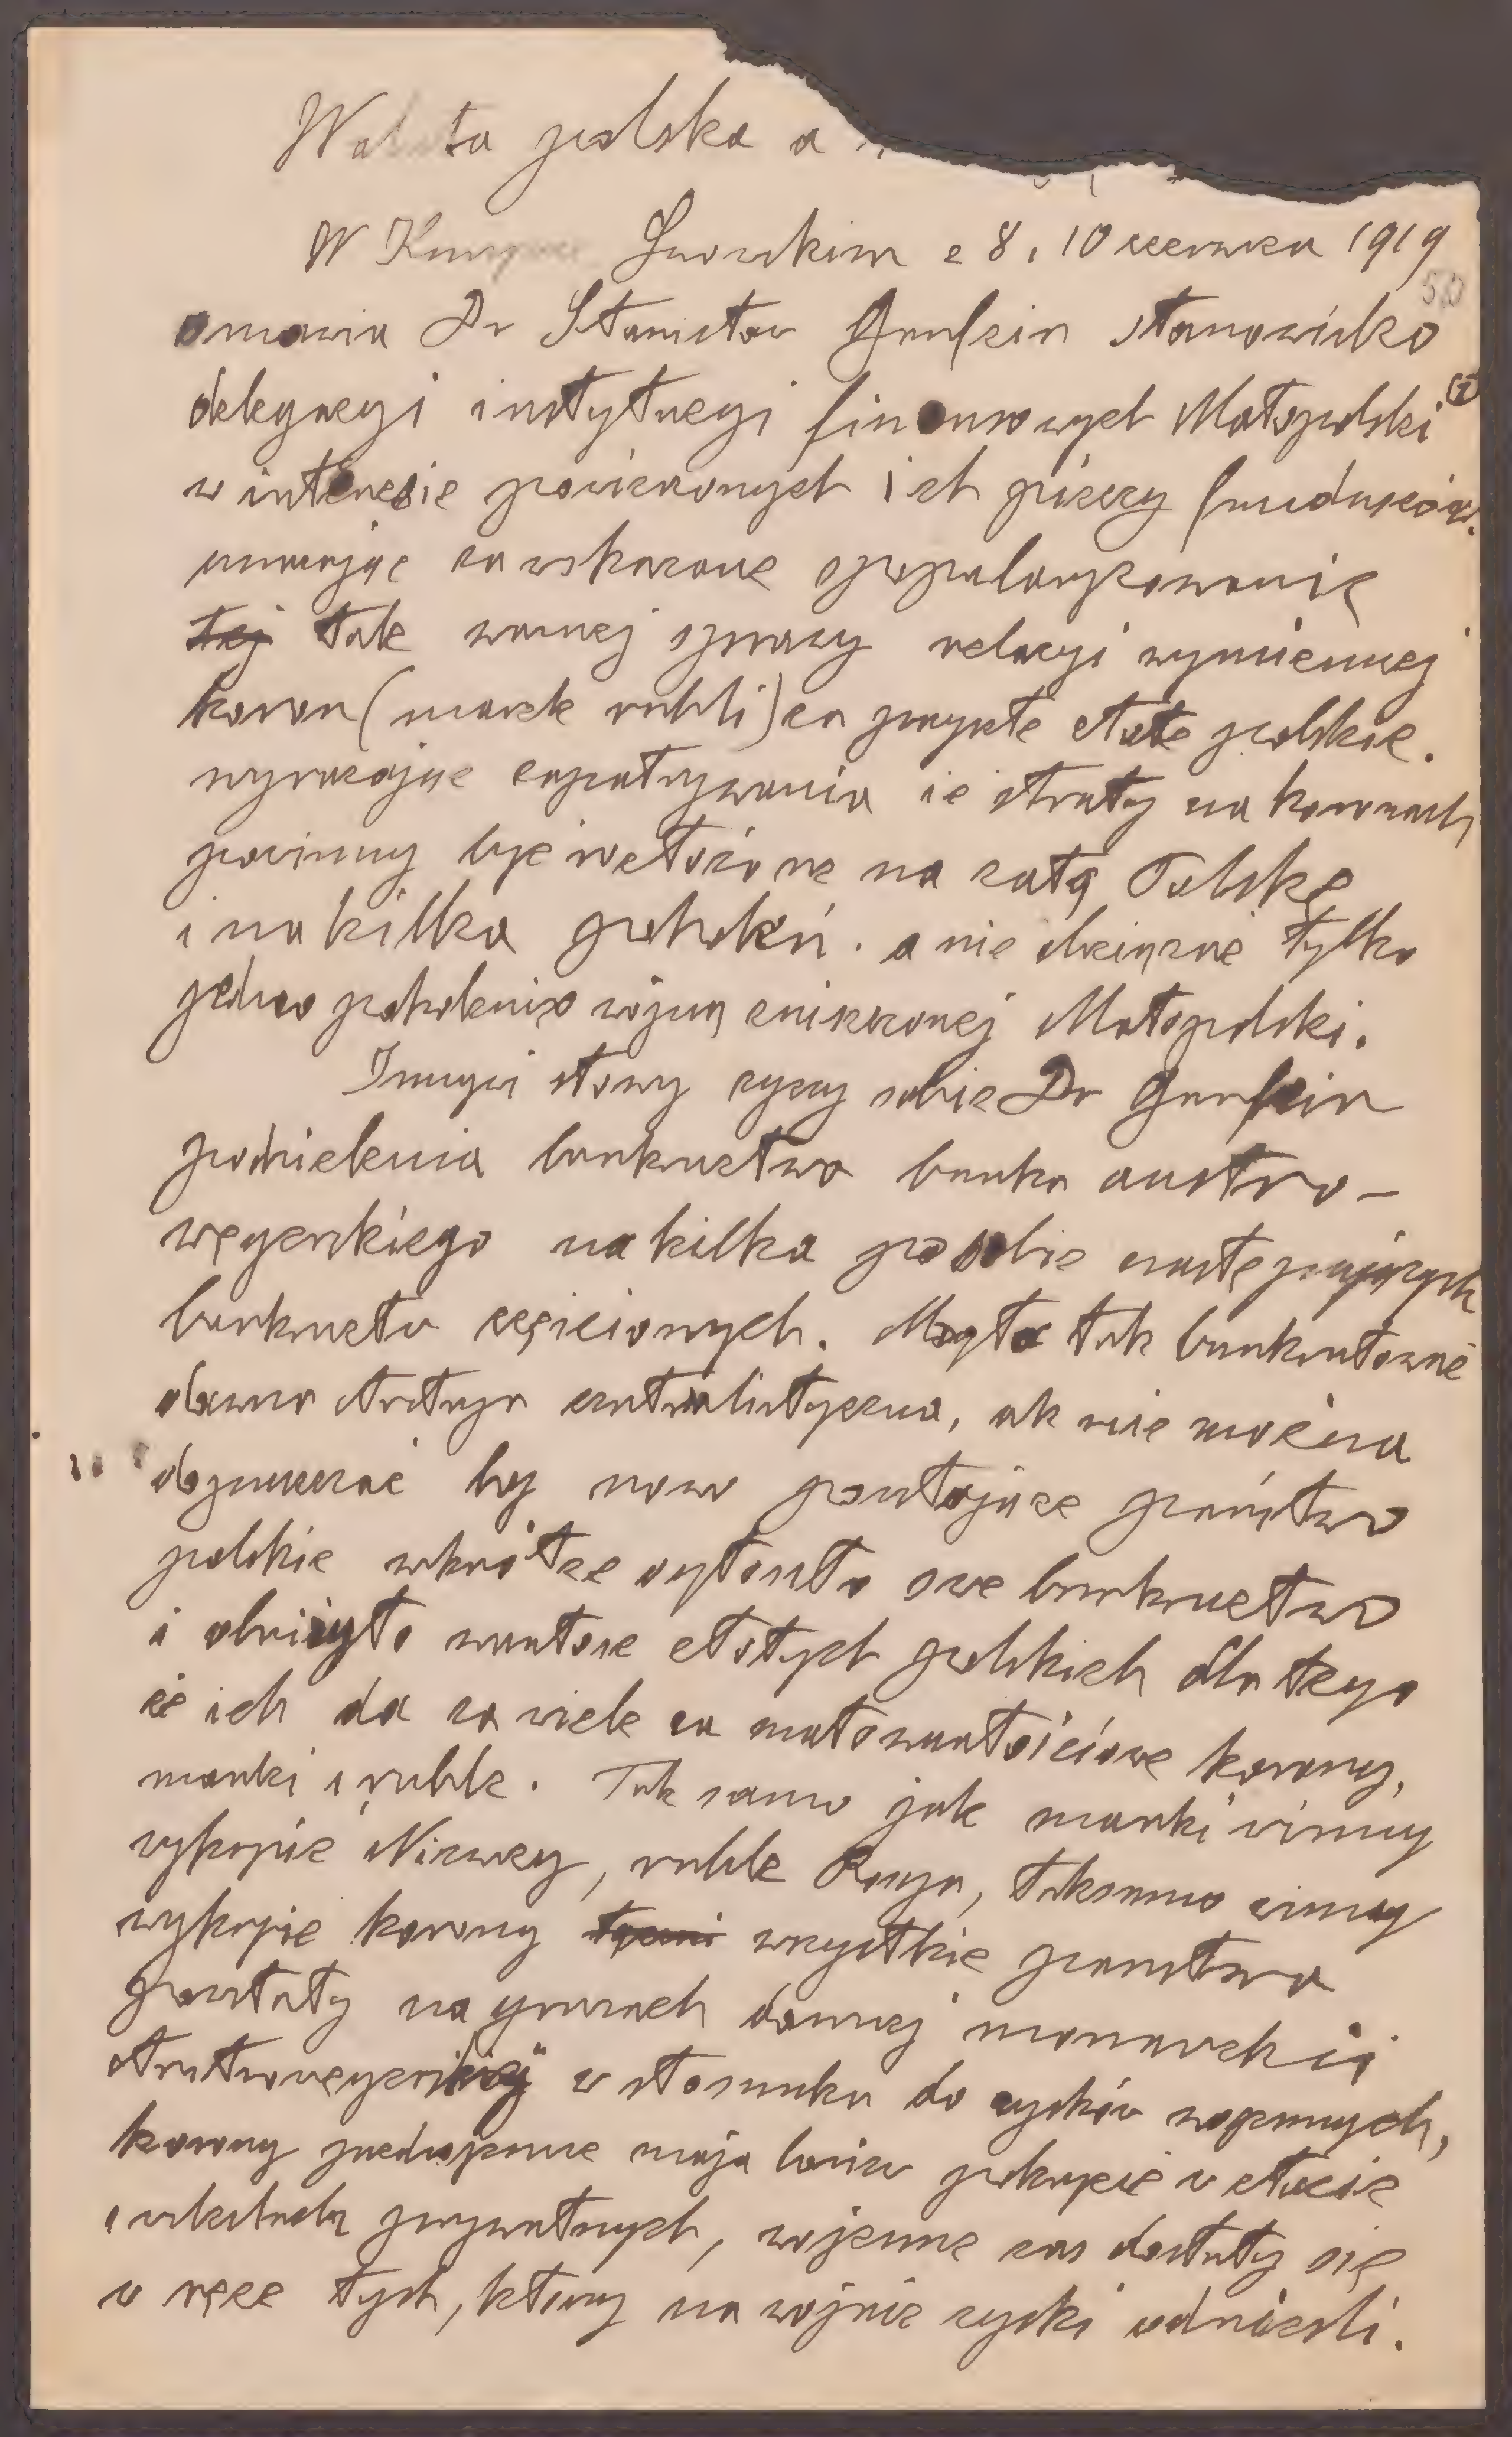 Waluta polska a
W Kuryerze Lwowskim z 8 i 10 czerwca 1919
omawia Dr Stanisław Garfein stanowisko
delegacyi instytucyi finansowych Małopolski
w interesie powierzonych ich pieczy funduszów.
uważając za wskazane spopularyzowanie
tej tak ważnej sprawy relacyi wymiennej
koron (marek rubli) za przyszłe złote polskie.
wyrażając zapatrywania że straty na koronach
powinny być rozłożone na całą Polskę
i na kilka pokoleń. a nie obciążać tylko
jedno pokolenie wojną zniszczonej Małopolski.
Innymi słowy życzy sobie Dr Garfein
podzielenia bankructwa banku austro-
węgerskiego na kilka po sobie następujących
bankructw częściowych. Mogła tak bankrutować
dawna Austrya centralistyczna, ale nie można
dopuszczać by nowo powstające państwo
polskie wkrótce ogłosiło swe bankructwo
i obniżyło wartość złotych polskich dla tego
że ich da za wiele za małowartościowe korony,
marki i ruble. Tak samo jak marki winny
wykupić Niemcy, ruble Rosya, taksamo winny
wykupić korony wszystkie państwa
powstały na gruzach dawnej monarchii
Austrowęgerskiej w stosunku do zysków wojennych,
korony przedwojenne mają bowiem pokrycie w złocie
i wkładach prywatnych, wojenne zaś dostały się
w ręce tych, którzy na wojnie zyski odnieśli.